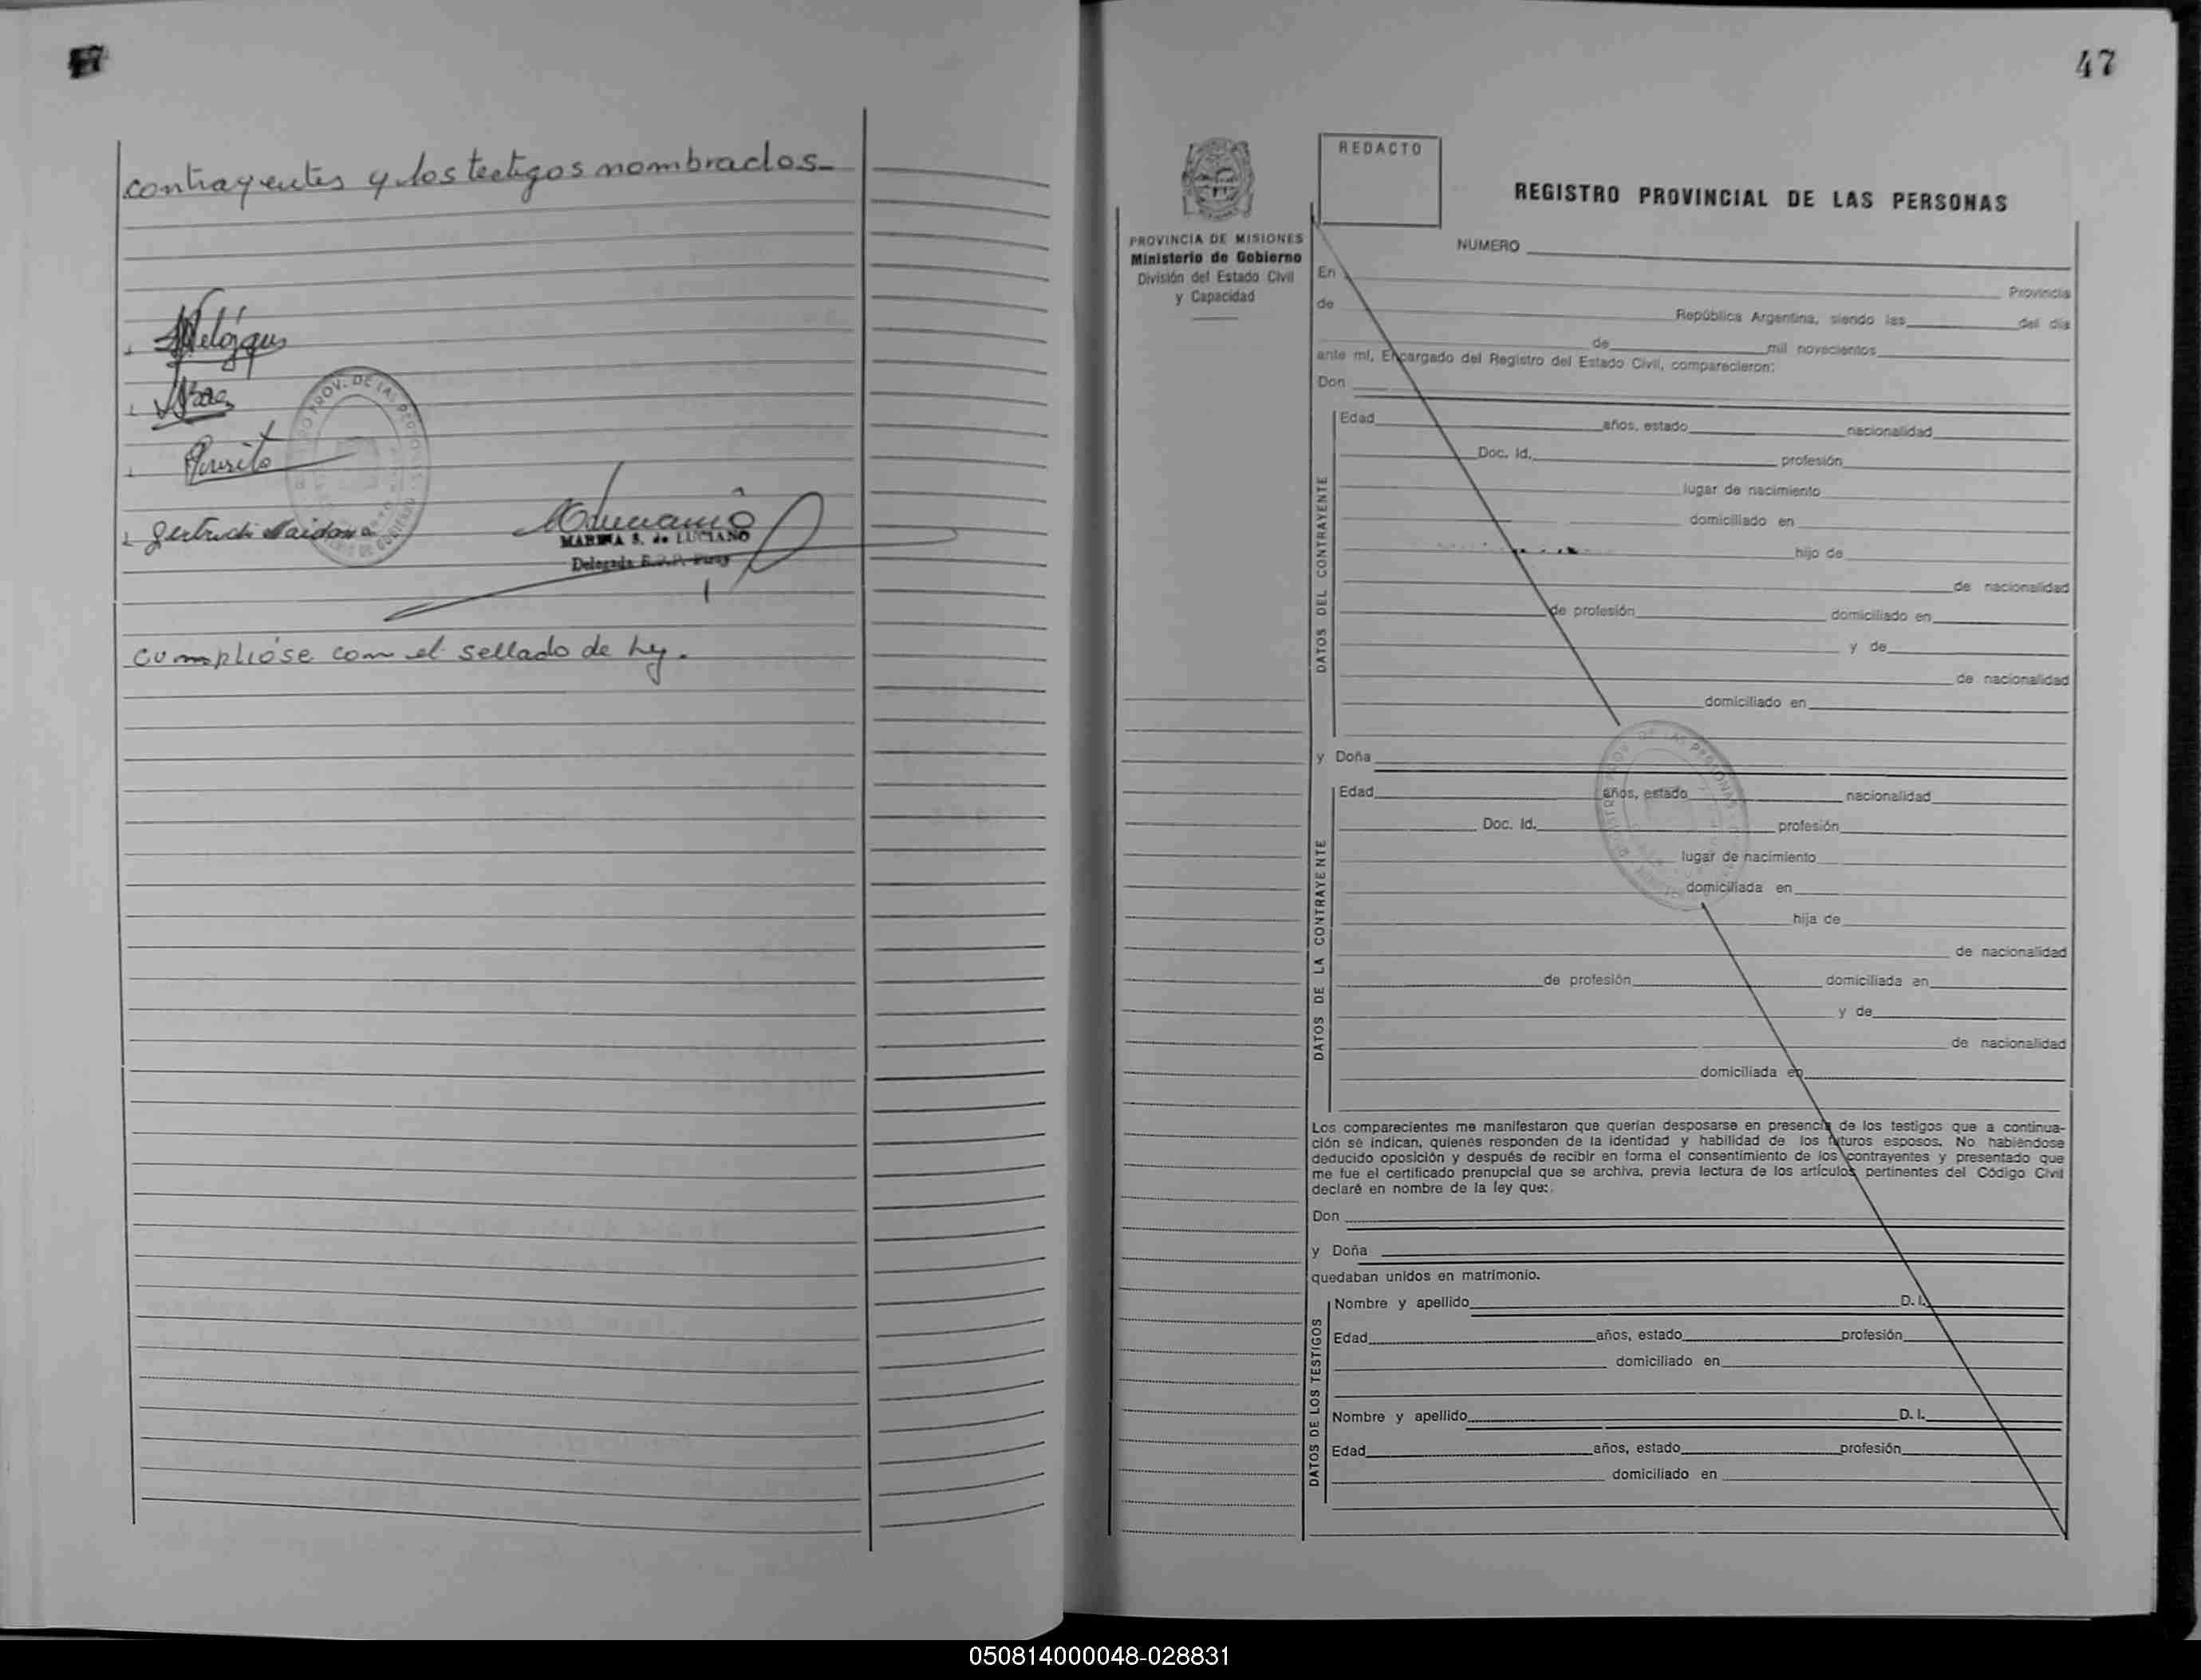 contrayentes y los testigos nombrados_
Velázques
Gertrudi Maidana
MARINA S. de LUCIANO
Delegada R.P.P.
cumplióse con el sellado de ley.
47
REDACTO
REGISTRO PROVINCIAL DE LAS PERSONAS
PROVINCIA DE MISIONES
Ministerio de Gobierno
División del Estado Civil
y Capacidad
NUMERO
En
Provincia
de República Argentina, siendo las del día
de mil novecientos
ante mí, Encargado del Registro del Estado Civil, comparecieron:
Don
DATOS DEL CONTRAYENTE
Edad años, estado nacionalidad
Doc. Id. profesión
lugar de nacimiento
domiciliado en
hijo de
de nacionalidad
de profesión domiciliado en
y de
de nacionalidad
domiciliado en
y Doña
DATOS DE LA CONTRAYENTE
Edad años, estado nacionalidad
Doc. Id. profesión
lugar de nacimiento
domiciliada en
hija de
de nacionalidad
de profesión domiciliada en
y de
de nacionalidad
domiciliada en
Los comparecientes me manifestaron que querían desposarse en presencia de los testigos que a continua-
ción se indican, quienes responden de la identidad y habilidad de los futuros esposos. No habiéndose
deducido oposición y después de recibir en forma el consentimiento de los contrayentes y presentado que
me fue el certificado prenupcial que se archiva, previa lectura de los artículos pertinentes del Código Civil
declaré en nombre de la ley que:
Don
y Doña
quedaban unidos en matrimonio.
DATOS DE LOS TESTIGOS
Nombre y apellido D. I.
Edad años, estado profesión
domiciliado en
Nombre y apellido D. I.
Edad años, estado profesión
domiciliado en
050814000048-028831